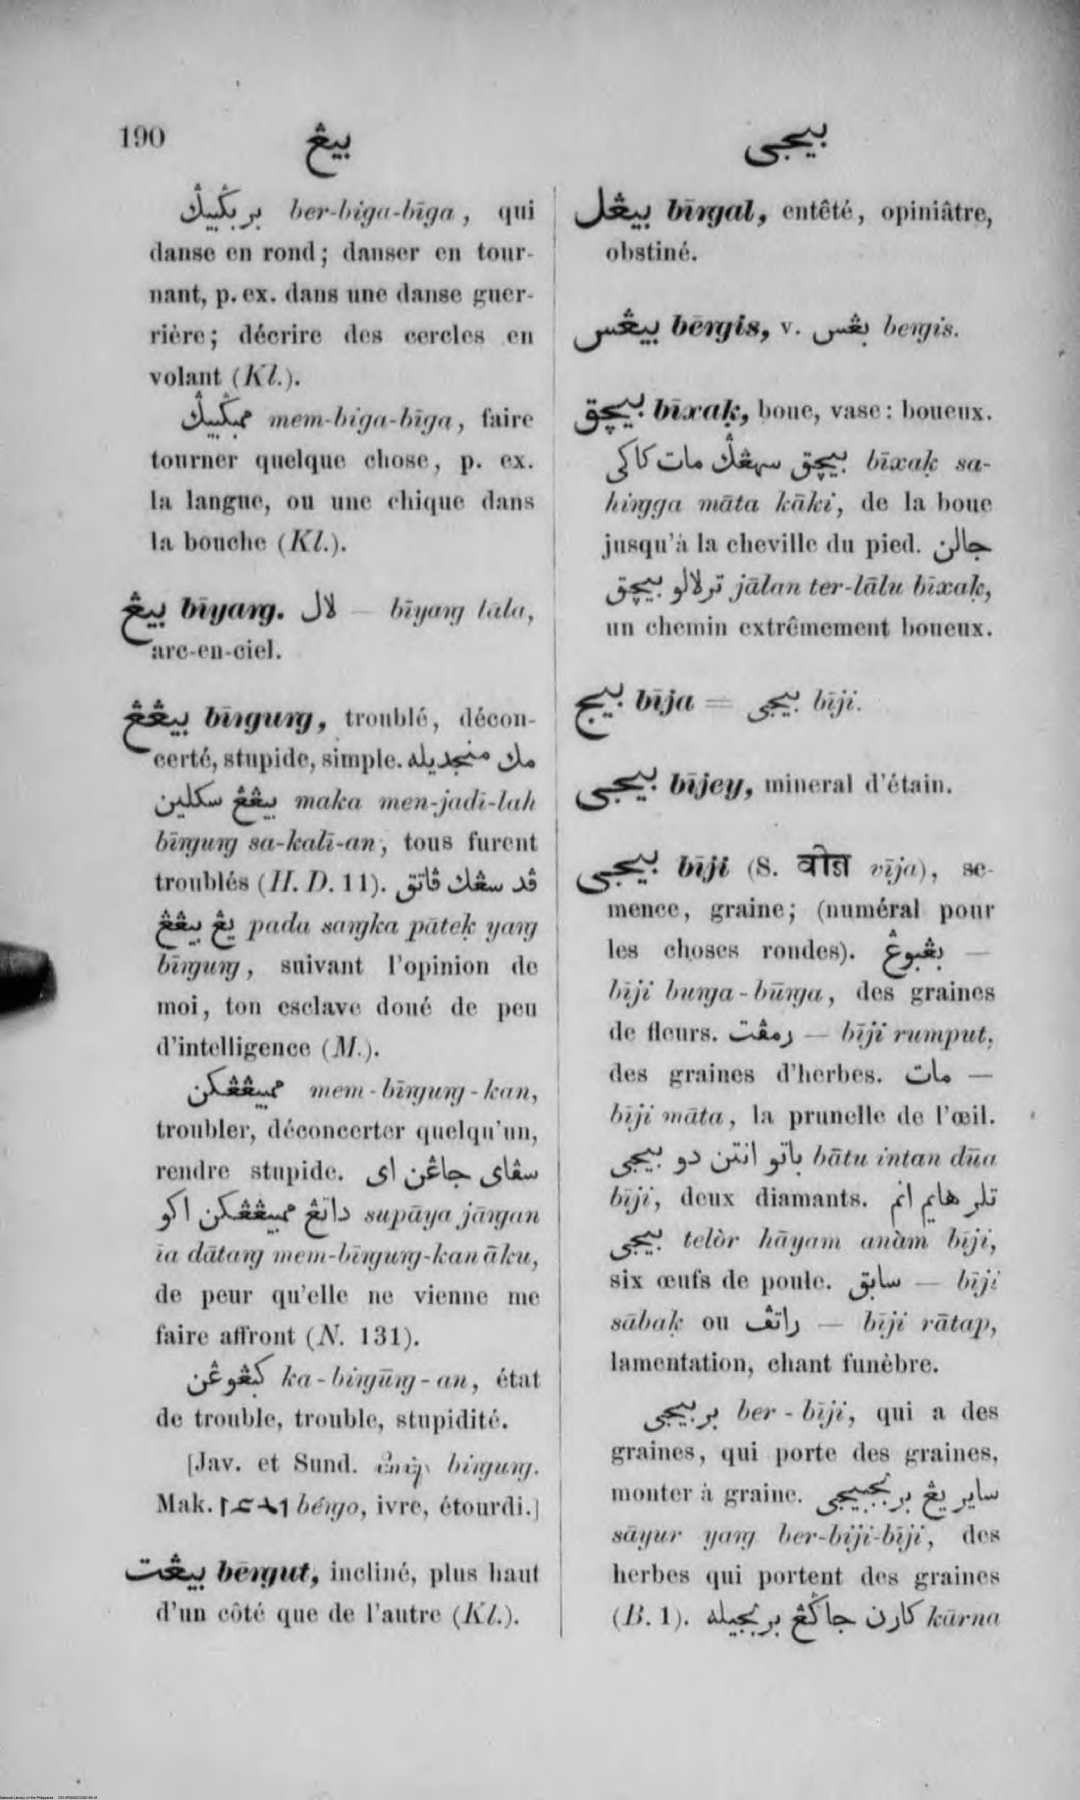 190 بيڠ بيجى
بربݢبيݢ ber-biga-bīga, qui
danse en rond; danser en tour-
nant, p. ex. dans une danse guer-
rière; décrire des cercles en
volant (Kl.).
ممبݢبيݢ mem-biga-bīga, faire
tourner quelque chose, p. ex.
la langue, ou une chique dans
la bouche (Kl.).
بيڠ bīyaṅg. لال — bīyaṅg lāla,
arc-en-ciel.
بيڠڠ bīṅguṅg, troublé, décon-
certé, stupide, simple. مك منجديله
بيڠڠ سكلين maka men-jadī-lah
bīṅguṅg sa-kalī-an, tous furent
troublés (H. D. 11). ڤد سڠك ڤاتق
يڠ بيڠڠ pada saṅgka pāteḳ yaṅg
bīṅguṅg, suivant l'opinion de
moi, ton esclave doué de peu
d'intelligence (M.).
ممبيڠڠكن mem-bīṅguṅg-kan,
troubler, déconcerter quelqu'un,
rendre stupide. سڤاى جاڠن اى
داتڠ ممبيڠڠكن اكو supāya jāṅgan
īa dātaṅg mem-bīṅguṅg-kan āku,
de peur qu'elle ne vienne me
faire affront (N. 131).
كبڠوڠن ka-biṅgūṅg-an, état
de trouble, trouble, stupidité.
[Jav. et Sund. biṅguṅg.
Mak. béṅgo, ivre, étourdi.]
بيڠت bēṅgut, incliné, plus haut
d'un côté que de l'autre (Kl.).
بيڠل bīṅgal, entêté, opiniâtre,
obstiné.
بيڠس bēṅgis, v. بڠس beṅgis.
بيچق bīxaḳ, boue, vase: boueux.
بيچق سهڠݢ مات كاكى bīxaḳ sa-
hiṅgga māta kāki, de la boue
jusqu'à la cheville du pied. جالن
ترلالو بيچق jālan ter-lālu bīxaḳ,
un chemin extrêmement boueux.
بيج bīja = بيجى bīji.
بيجى bījey, mineral d'étain.
بيجى bīji (S. वीज vīja), se-
mence, graine; (numéral pour
les choses rondes). بڠبوڠ —
bīji buṅga-būṅga, des graines
de fleurs. رمڤت — bīji rumput,
des graines d'herbes. مات —
bīji māta, la prunelle de l'œil.
باتو انتن دو بيجى bātu intan dūa
bīji, deux diamants. تلر هايم انم
بيجى telòr hāyam anàm bīji,
six œufs de poule. سابق — bīji
sābaḳ ou راتڤ — bīji rātap,
lamentation, chant funèbre.
بربيجى ber-bīji, qui a des
graines, qui porte des graines,
monter à graine. ساير يڠ بربجبيجى
sāyur yaṅg ber-biji-bīji, des
herbes qui portent des graines
(B. 1). كارن جاݢڠ بربجيله kārna